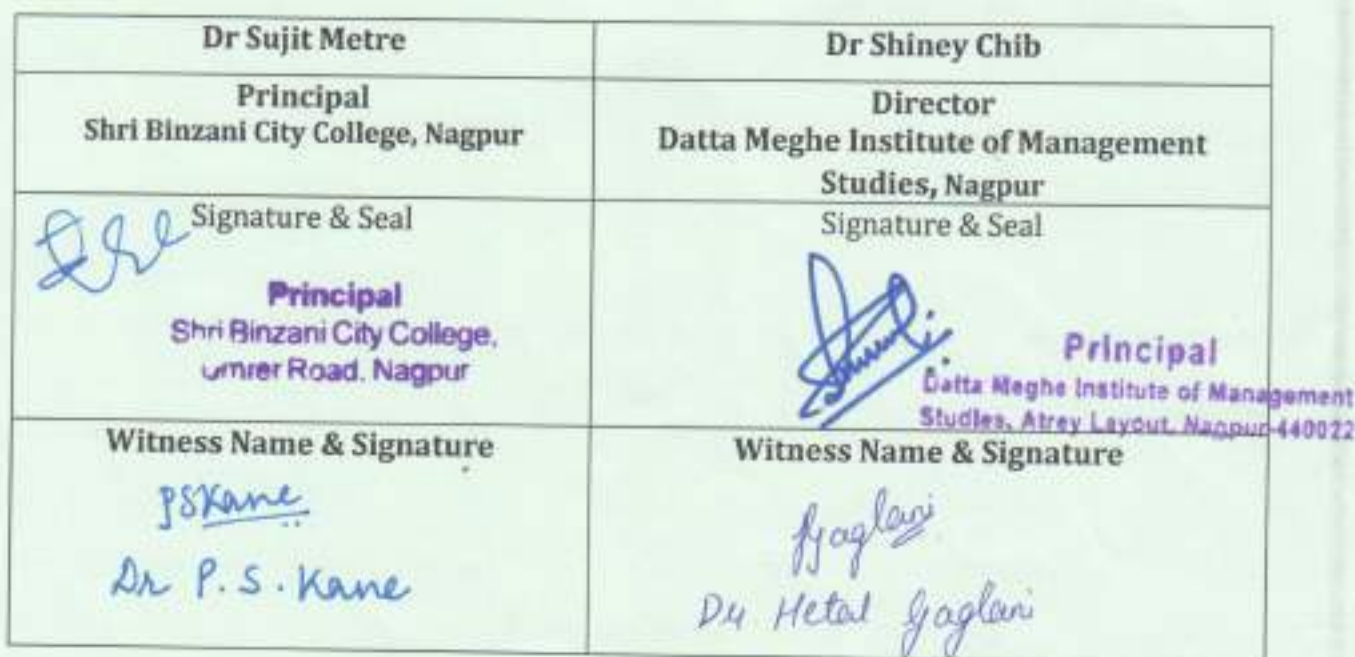 Dr Sujit Metre
Dr Shiney Chib
Principal
Shri Binzani City College, Nagpur
Director
Datta Meghe Institute of Management
Studies, Nagpur
Signature & Seal
Principal
Shri Binzani City College,
Umrer Road. Nagpur
Signature & Seal
Principal
Datta Meghe Institute of Management
Studies, Atrey Layout, Nagpur-440022
Witness Name & Signature
PSKane
Dr P. S. Kane
Witness Name & Signature
Gaglani
Dr Hetal Gaglani